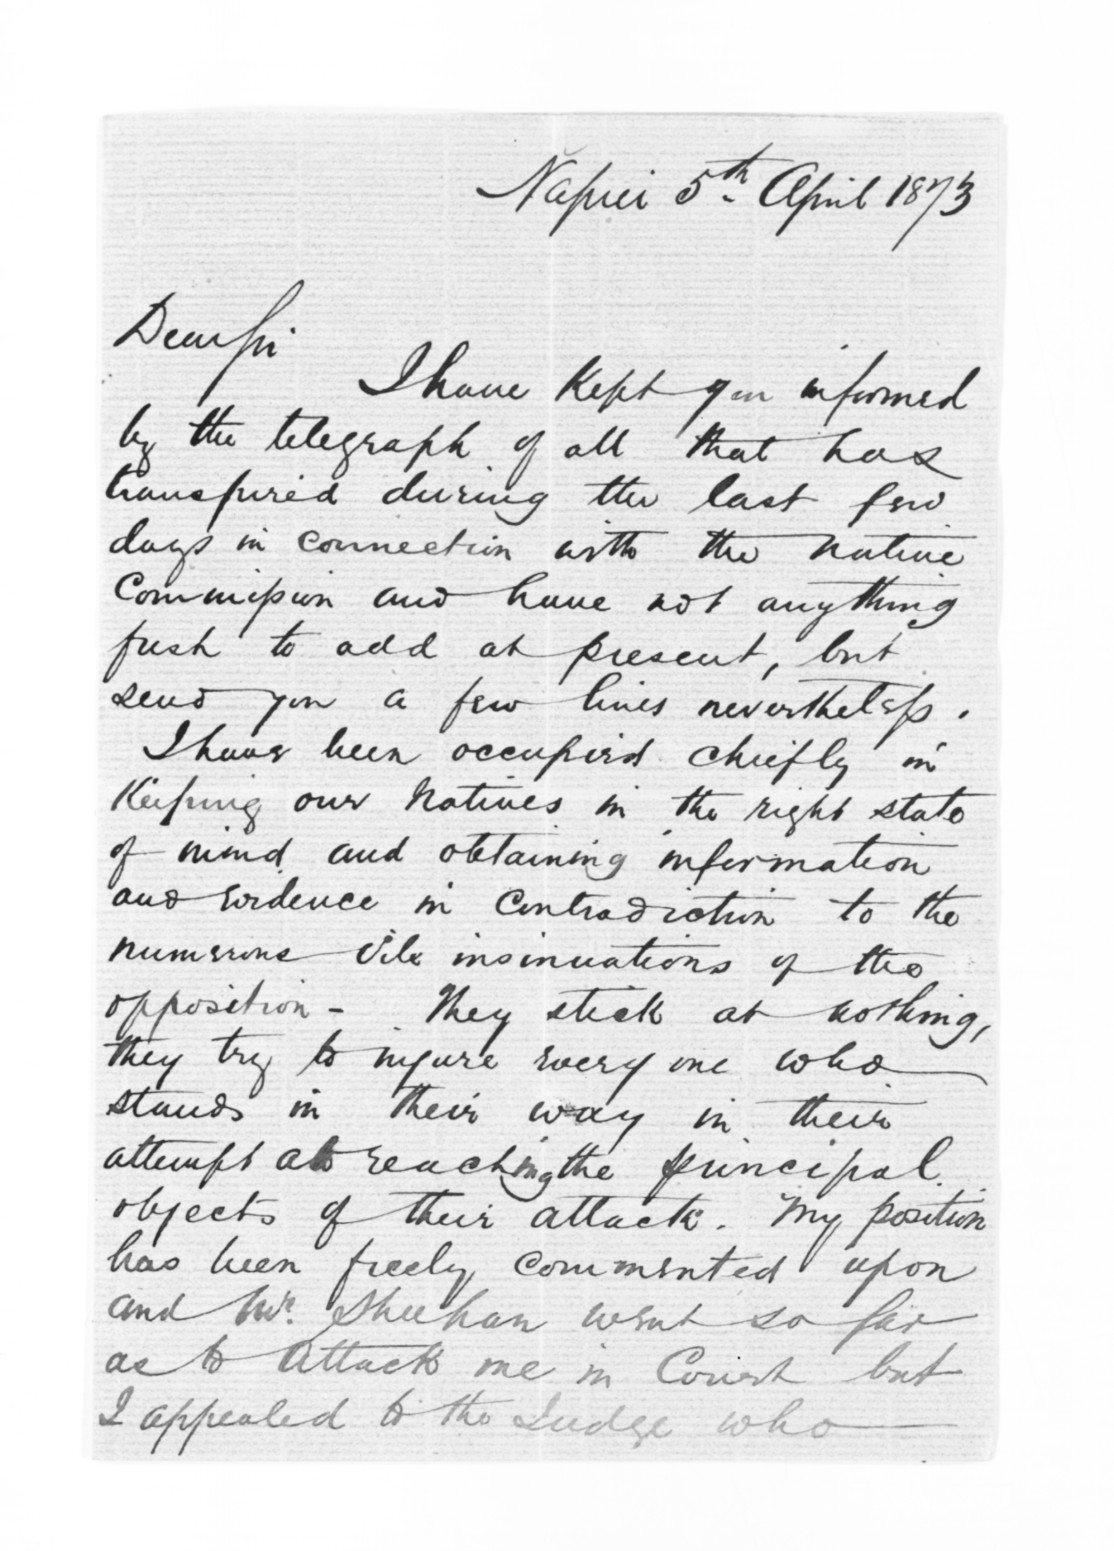 Napier 5th April 1873
Dear Sir
I have kept you informed
by the telegraph of all that has
transpired during the last few
days in connection with the native
Commission and have not anything
fresh to add at present, but
send you a few lines nevertheless.
I have been occupied chiefly in
Keeping our Natives in the right state
of mind and obtaining information
and evidence in contradiction to the
numerous vile insinuations of the
opposition - They stick at nothing,
they try to injure every one who
stands in their way in their
attempt at reaching the principal
objects of their attack. My position
has been freely commented upon
and Mr. Sheehan went so far
as to attack me in Court but
I appealed to the Judge who